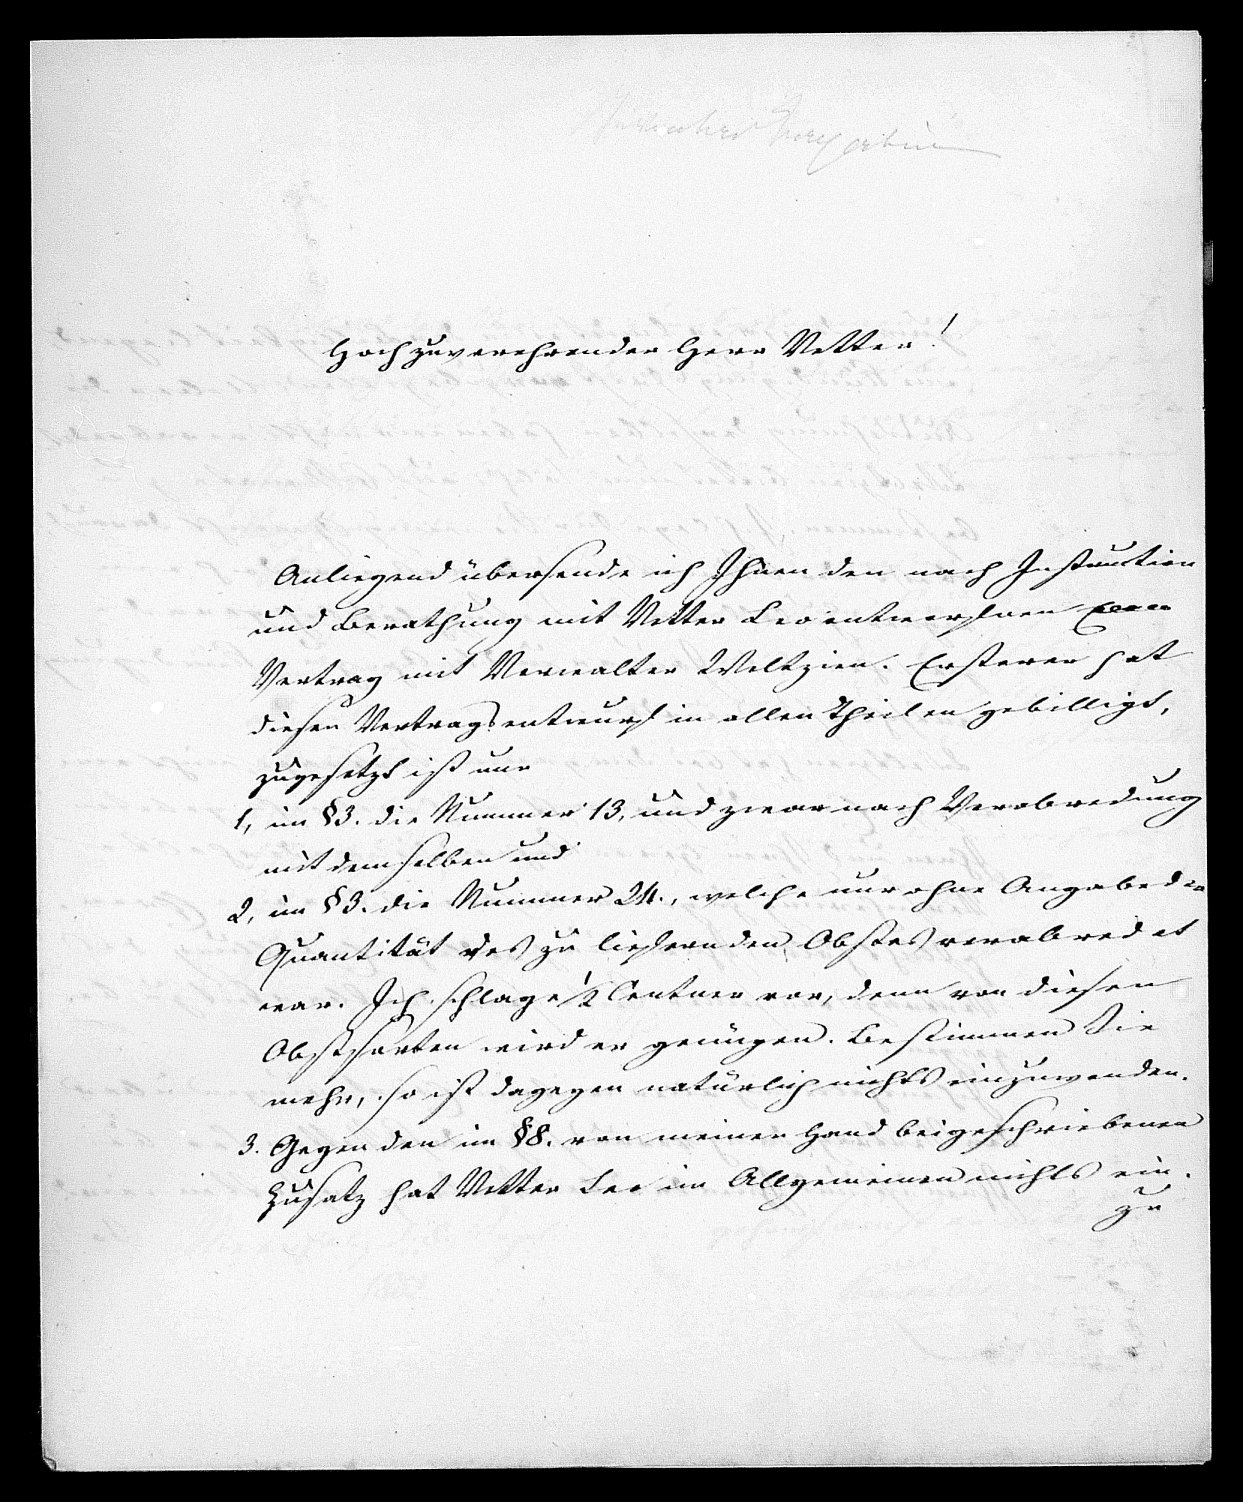 Hochzuverehrender Herr Vetter!
Anliegend übersende ich Ihnen den nach Instruction
und Berathung mit Vetter Leo entworfenen
Vertrag mit Verwalter Weltzien. Ersterer hat
diesen Vertragsentwurf in allen Theilen gebilligt,
zugesetzt ist nur
1, im §3. die Nummer 13, und zwar nach Verabredung
mit demselben und
2, im §3. die Nummer 24., welche nur ohne Angabe der
Quantität des zu liefernden Obstes verabredet
war. Ich schlage 1/2 Centner vor, denn von diesen
Obstsorten wird er genügen. Bestimmen Sie
mehr, so ist dagegen natürlich nichts einzuwenden.
3. Gegen den im §8. von meiner Hand beigeschriebenen
Zusatz hat Vetter Leo im Allgemeinen nichts ein-
zu